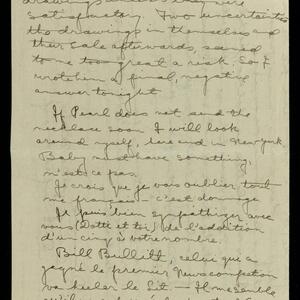 drawings unless they were
satisfactory. Two uncertainties
the drawings in themselves and
their sale afterwards, seemed
to me too great a risk. So I
wrote him a final, negative
answer tonight
If Pearl does not send the
necklace soon I will look
around myself, here and in New York
Baby must have something,
n'est ce pas.
Je crois que je vais oublier tout
me français — c'est domage
Je puis bien sympathizer avec
vous (Dotti et toi) de l'addition
d'un cinq à votre nombre.
Bill Bullitt, celui que a
gagné le premier Newscompetion
va heeler le Lit — Il me semble